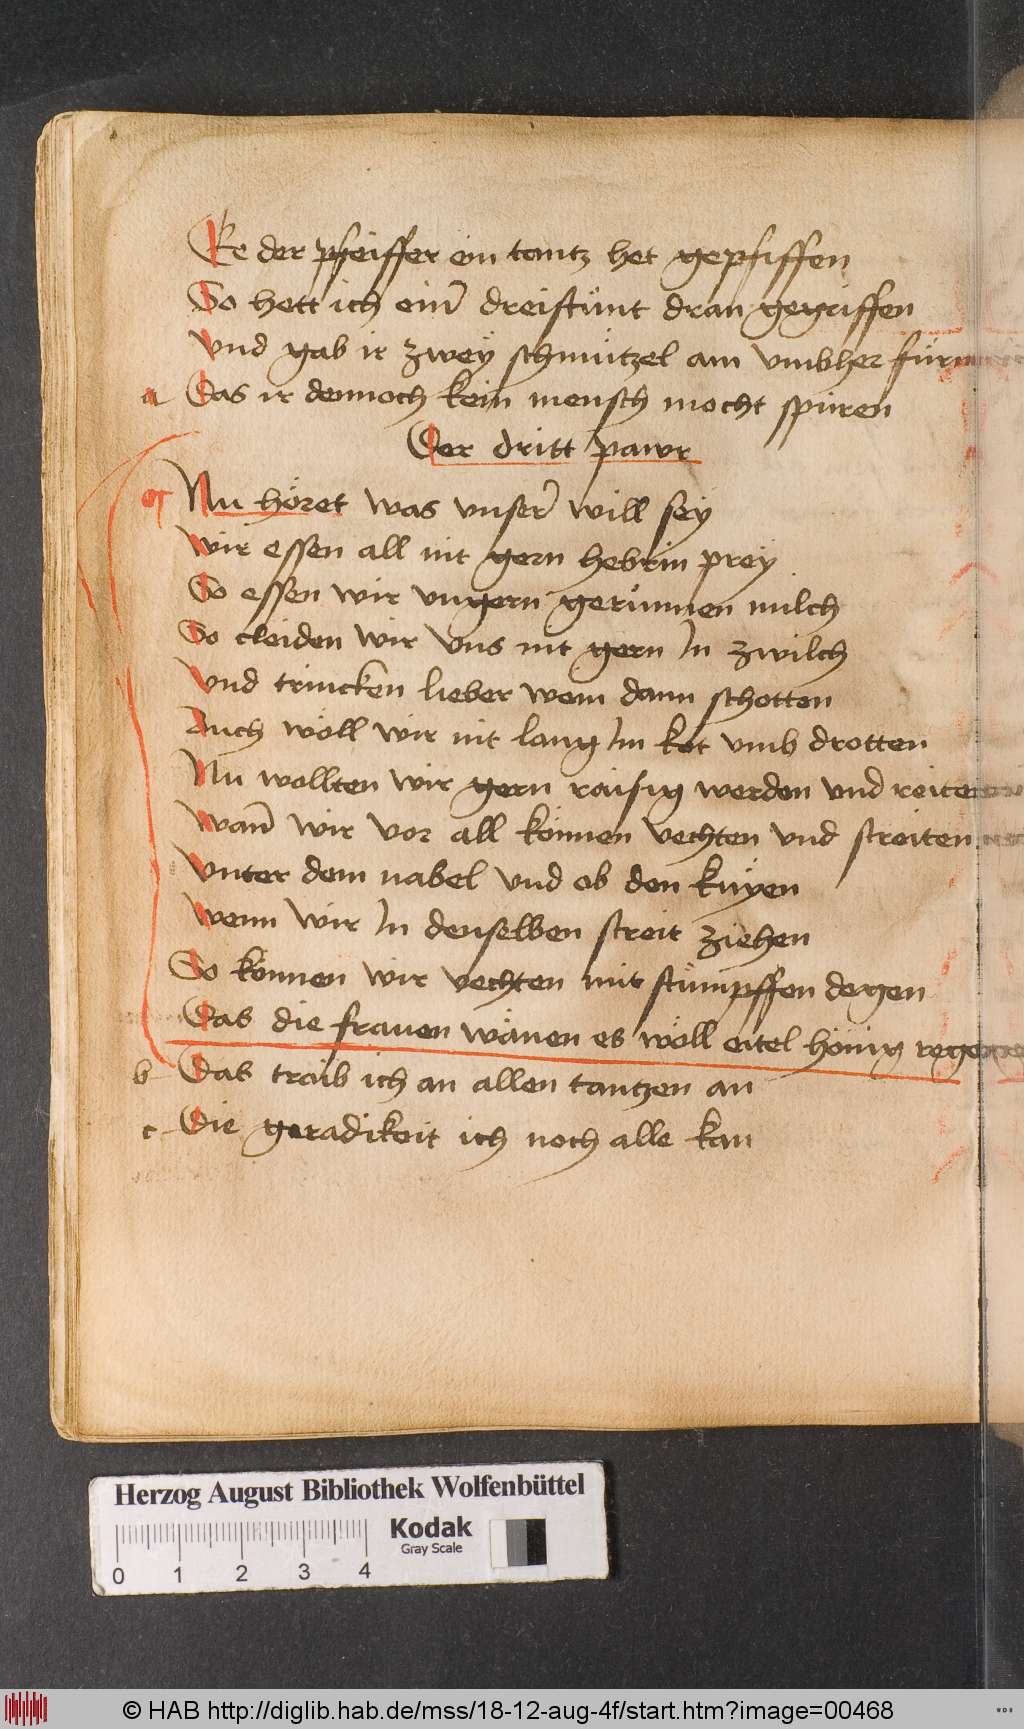 Ee der pfeiffer ein tantz het gepfiffen
So hett ich eim̄ dreistünt dran gegriffen
Vnd gab ir zwey schmützel am vmbher
a Das ir dennoch kein mensch mocht spüren
Der dritt pawr
Nu höret was vnser̄ will sey
Wir essen all nit gern hebrin prey
So essen wir vngern gerünnen milch
So cleiden wir vns nit gern In zwilch
Vnd trincken lieber wein dann schotten
Auch wöll wir nit lang Im kot vmb drotten
Nu wollten wir gern raisig werden vnd reiten
Wañ wir vor all können vechten vnd streiten
Vnter dem nabel vnd ob den knyen
Wenn wir In denselben streit ziehen
So können wir vechten mit stümpffen degen
Das die frauen wänen es wöll eitel hönig regen
b Das traib ich an allen tantzen an
c Die geradikeit ich noch alle kan
Herzog August Bibliothek Wolfenbüttel
Kodak
Gray Scale
0 1 2 3 4
© HAB http://diglib.hab.de/mss/18-12-aug-4f/start.htm?image=00468